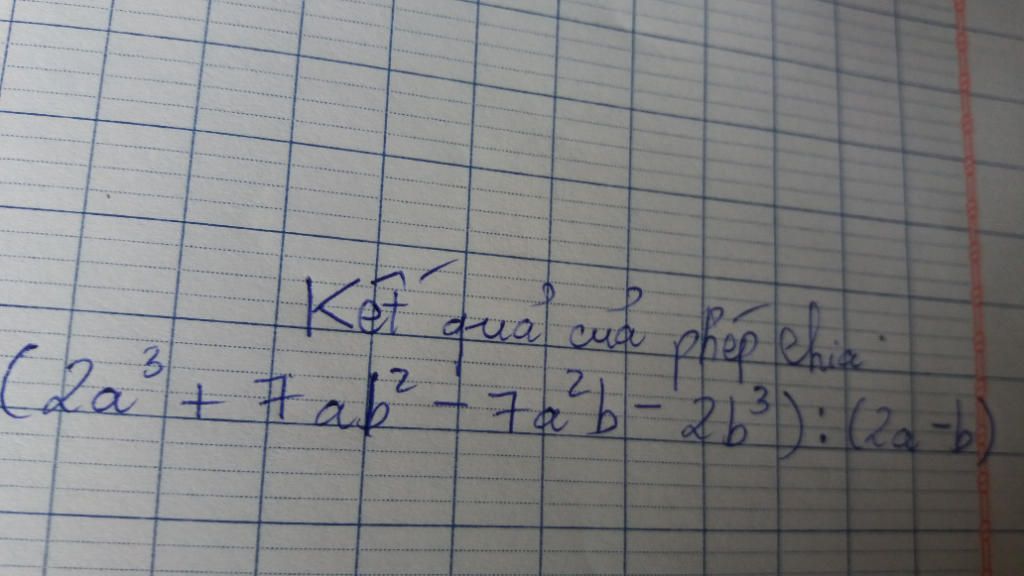 Kết quả của phép chia:
(2a³ + 7ab² - 7a²b - 2b³) : (2a - b)